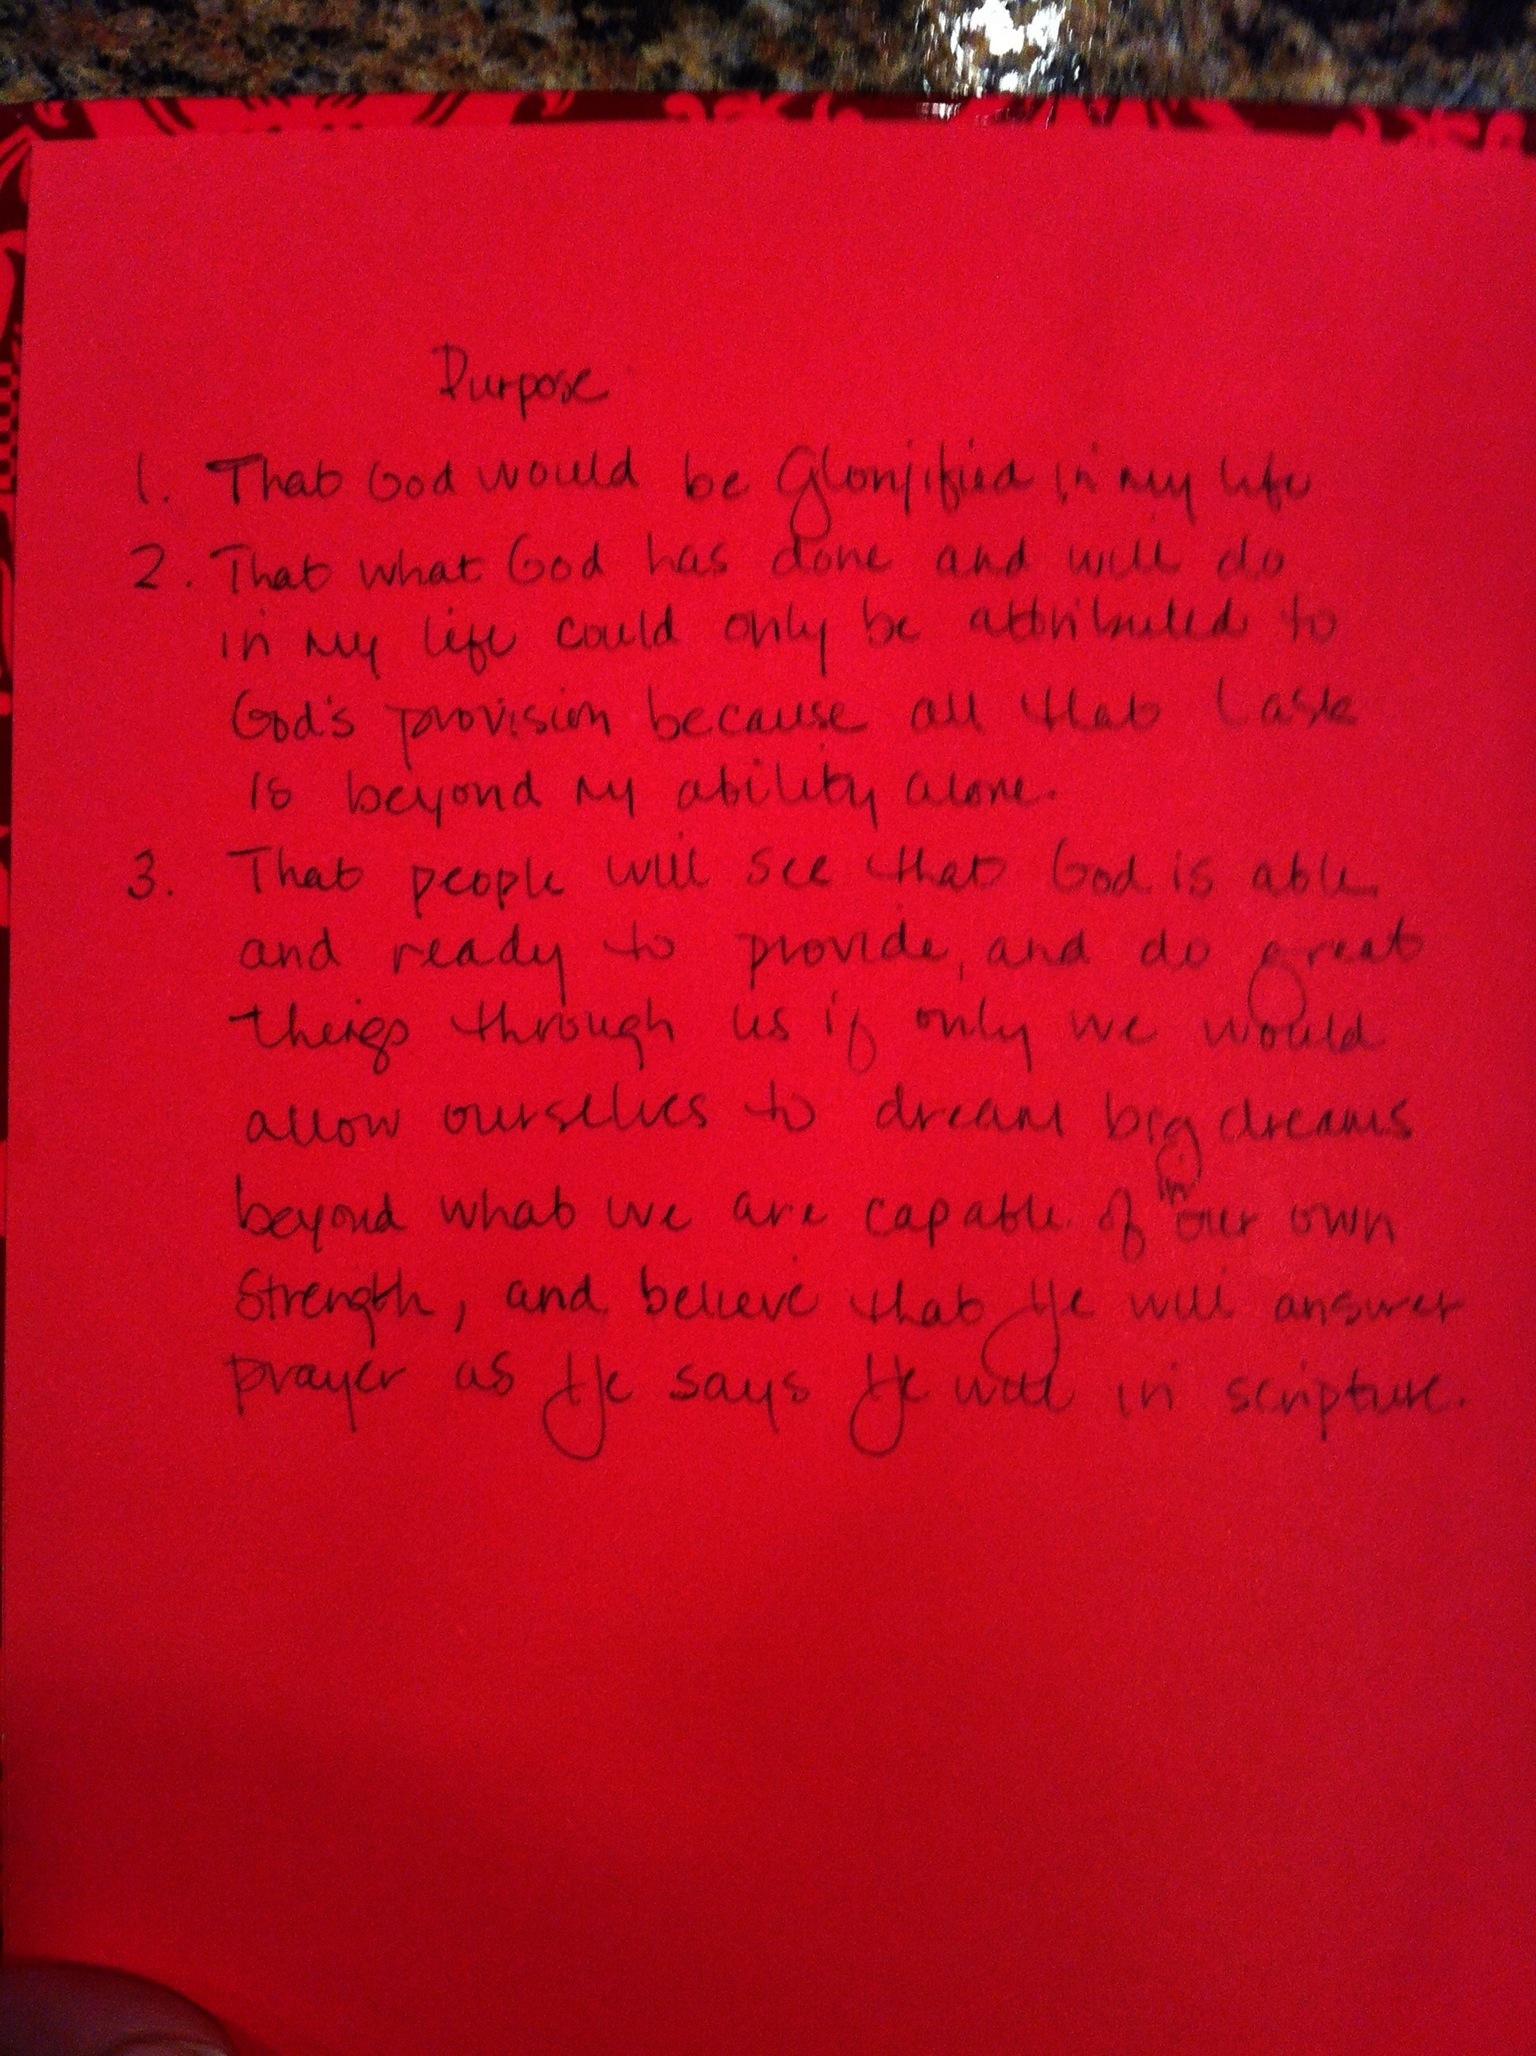 Purpose
1. That God would be Glorified in my life
2. That what God has done and will do
in my life could only be attributed to
God's provision because all that I ask
is beyond my ability alone.
3. That people will see that God is able
and ready to provide, and do great
things through us if only we would
allow ourselves to dream big dreams
beyond what we are capable of in our own
Strength, and believe that He will answer
prayer as He says He will in scripture.